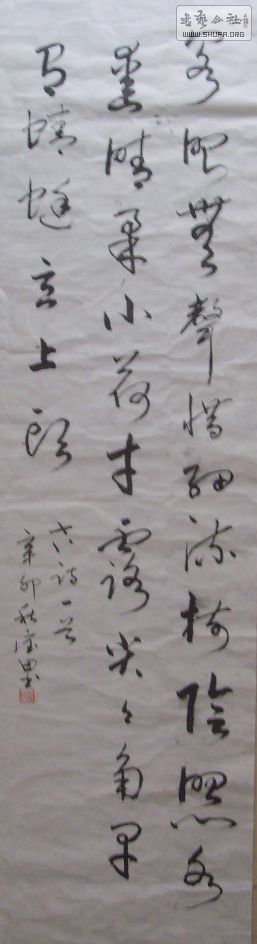 書藝公社
WWW.SHUFA.ORG
泉眼無聲惜細流樹陰照水
愛晴柔小荷才露尖々角早
有蜻蜓立上頭
古詩一首
辛卯秋